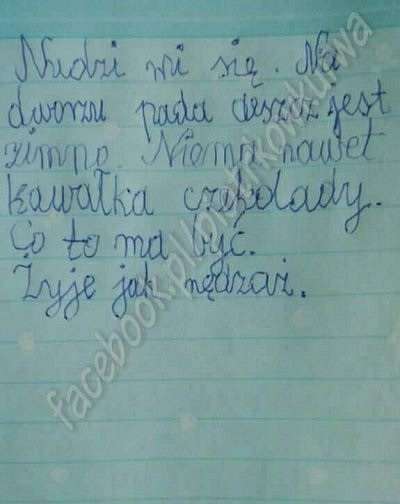 Nudzi mi się. Na
dworzu pada deszcz jest
zimno. Niema nawet
kawałka czekolady.
Co to ma być.
Żyje jak nędzaż.